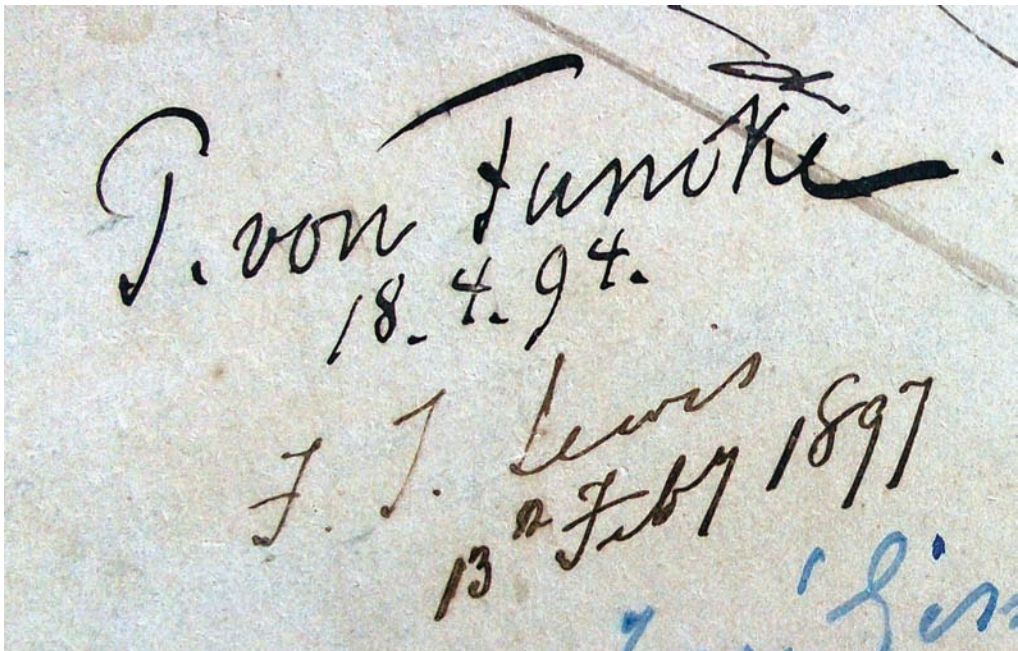 P. von Funcke.
18.4.94.
F. J. Lewis
13th Feby 1897